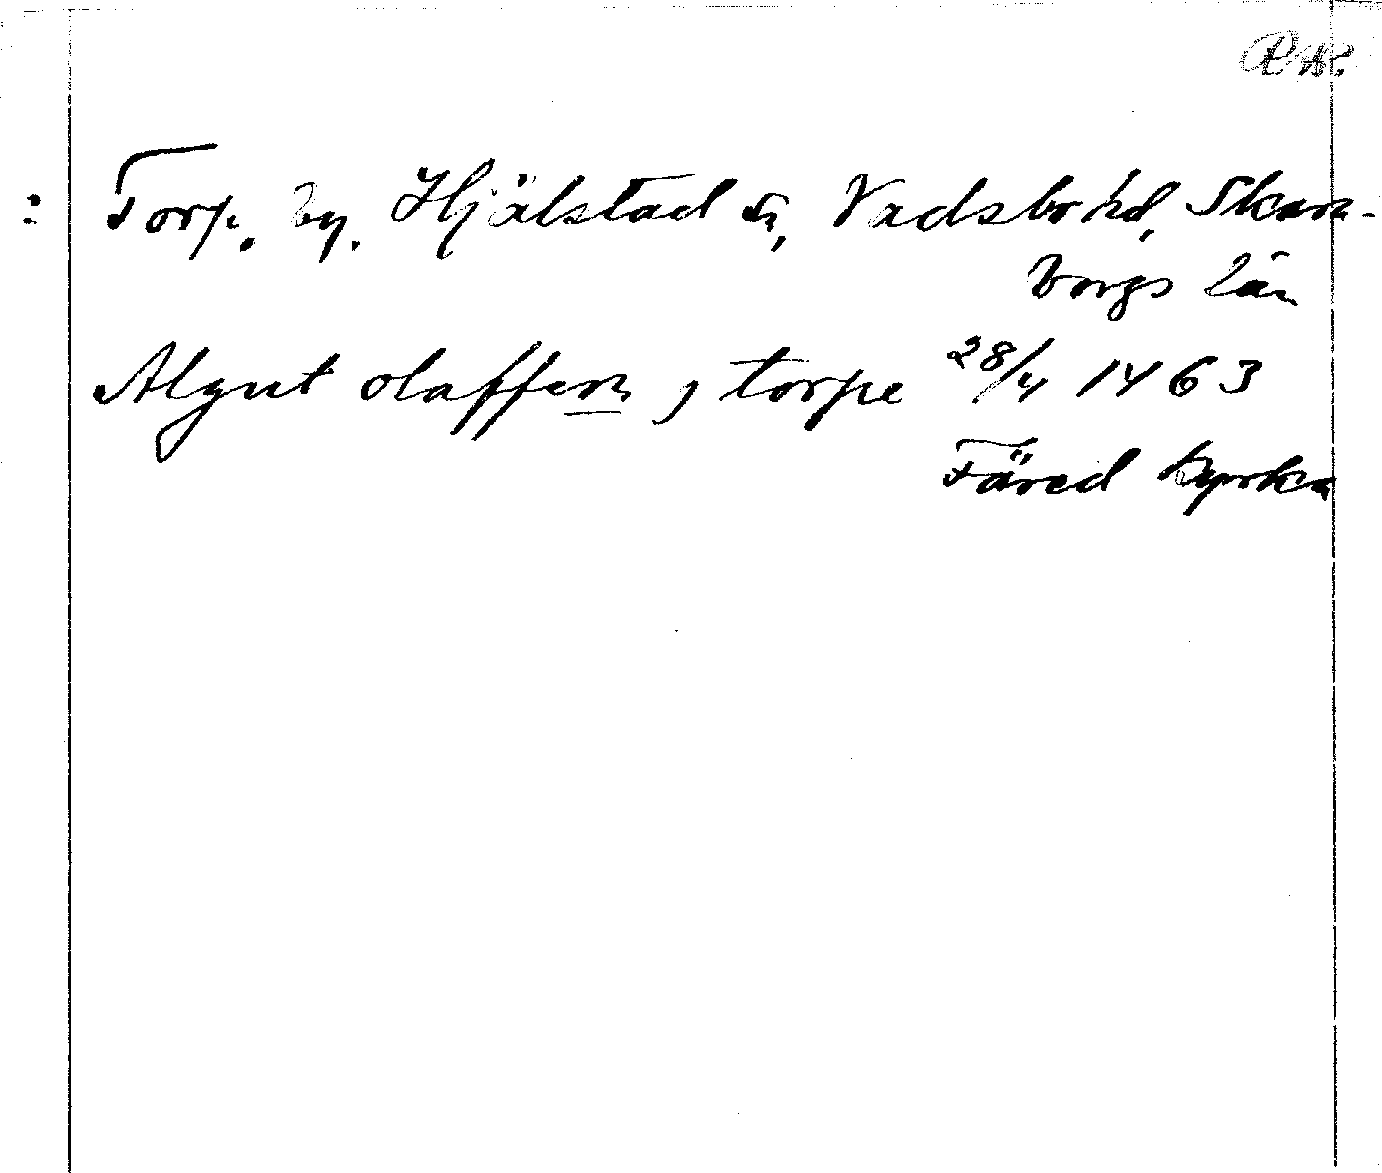 RA.
: Torp. by. Hjälstad sn, Vadsbo hd, Skara-
borgs län
Algut olaffsen j torpe 28/4 1463
Färed kyrka